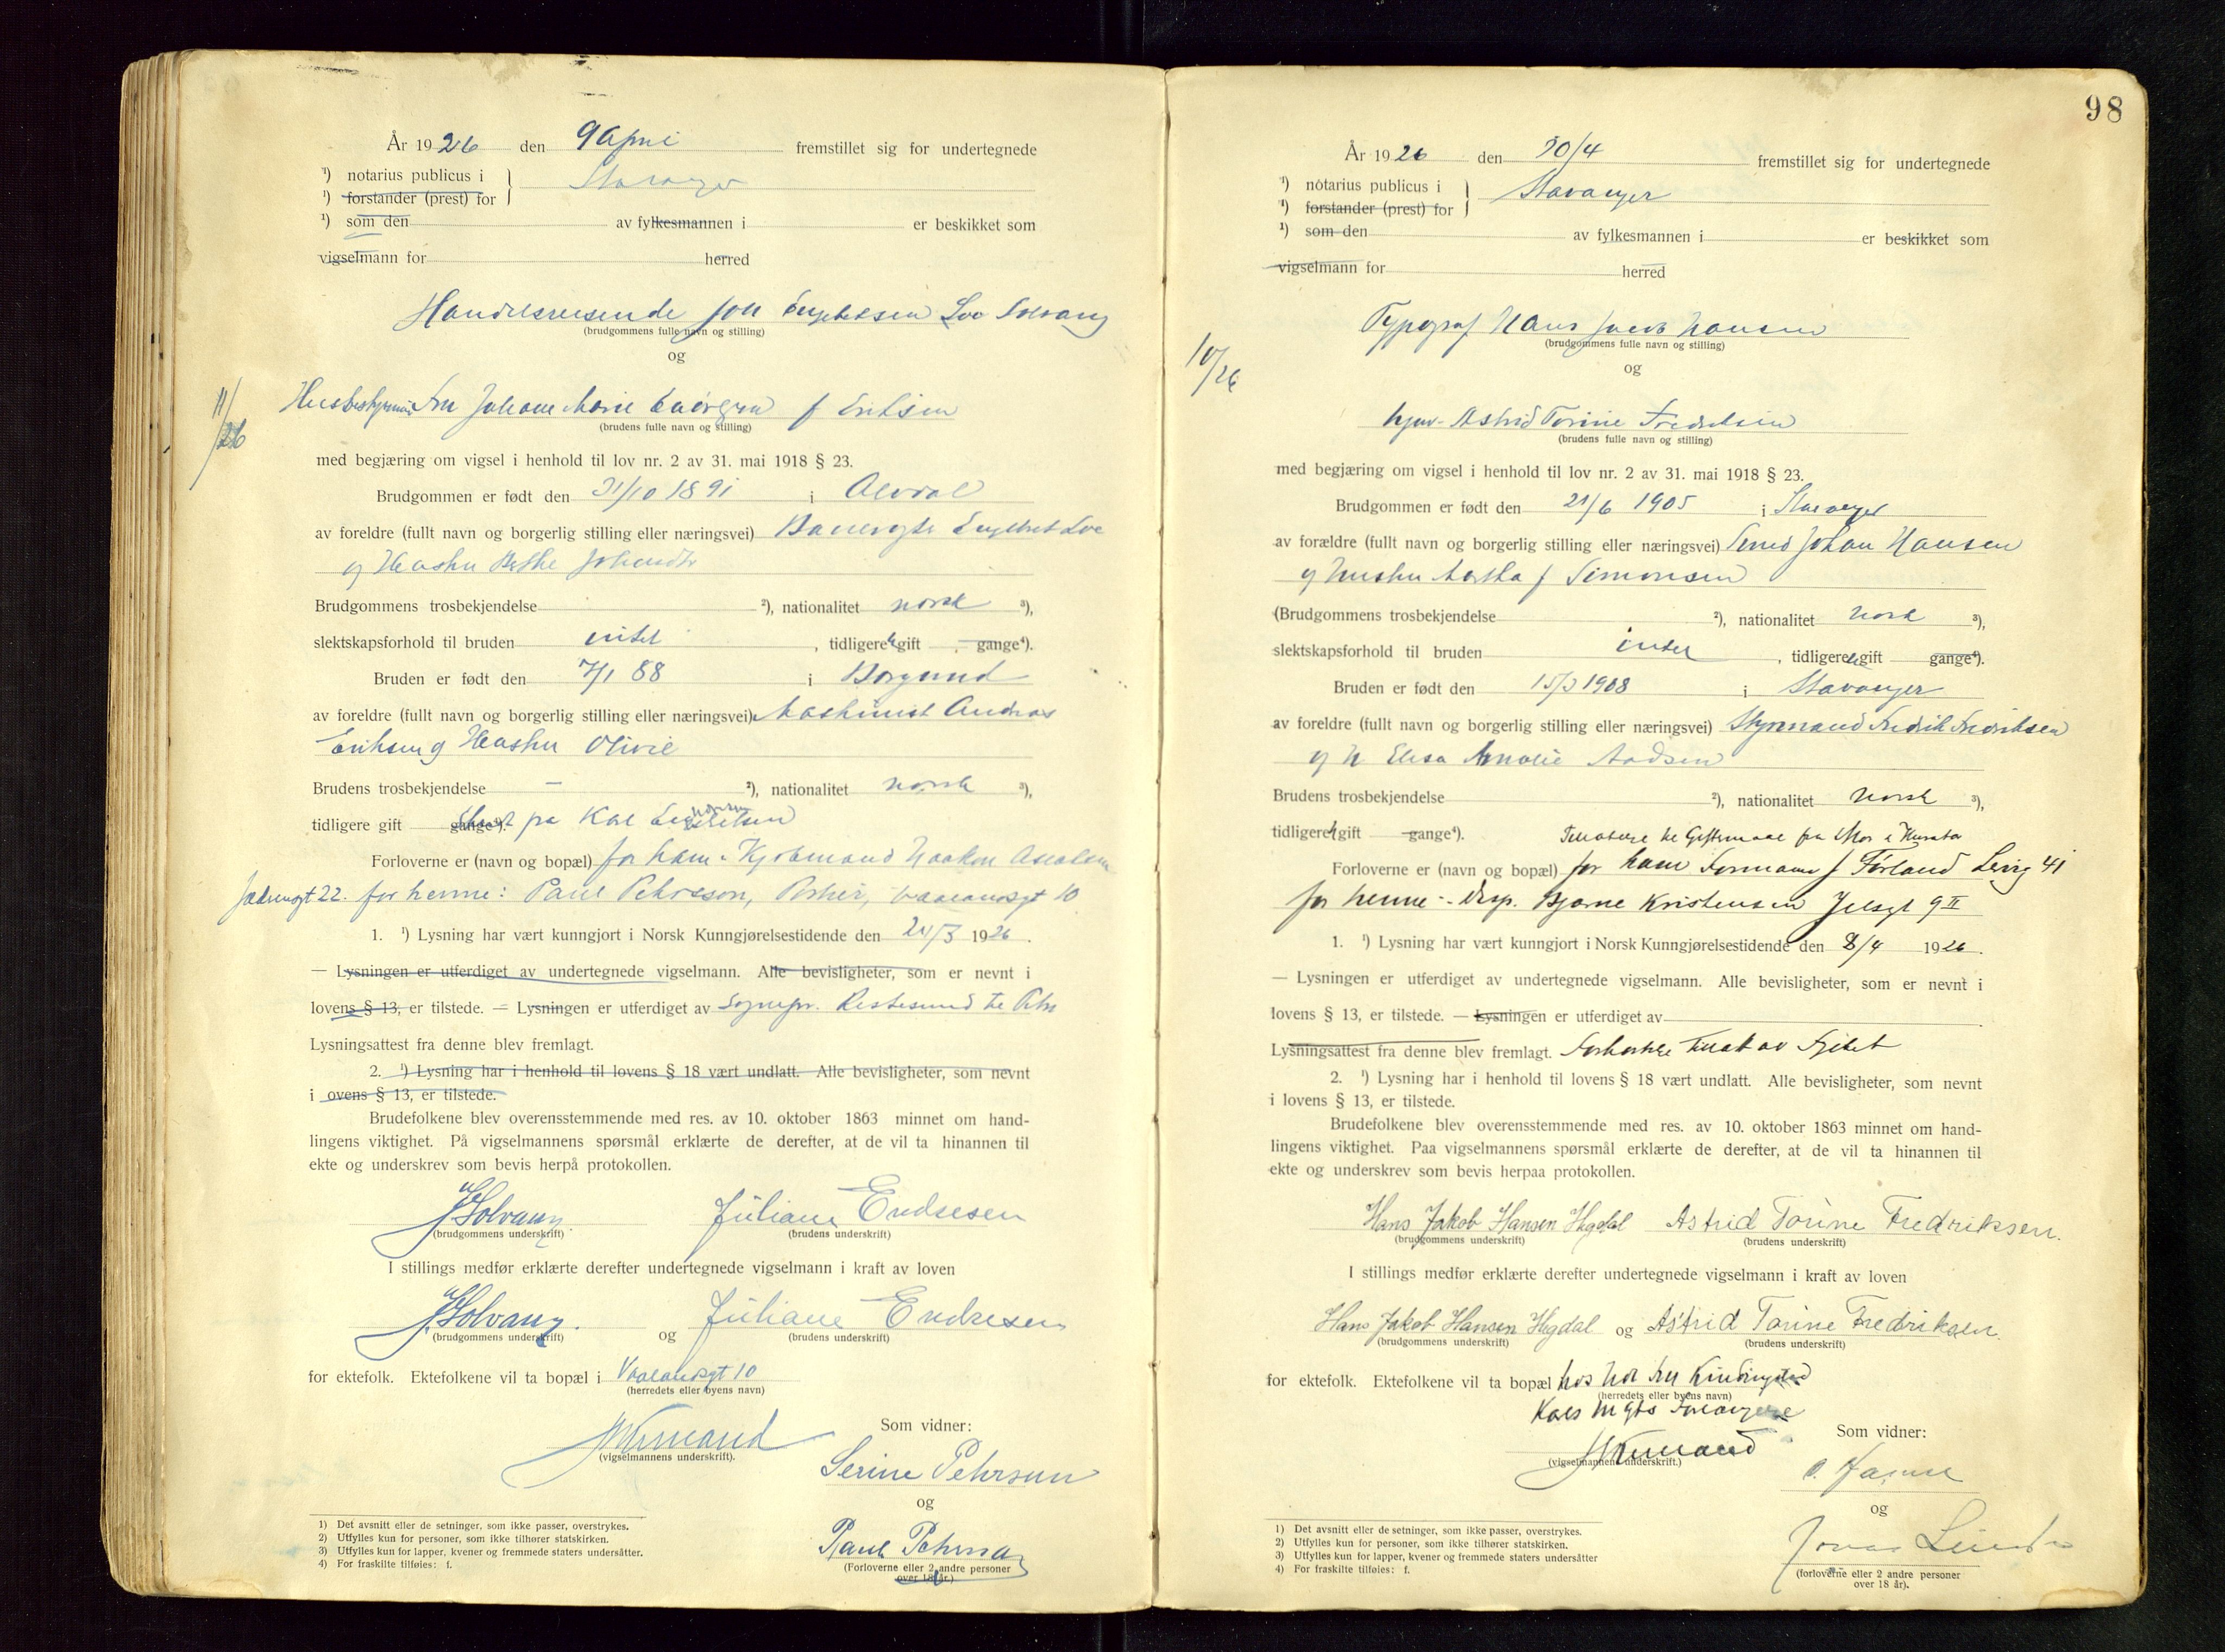 År 1926 den 9 April fremstillet sig for undertegnede
¹) notarius publicus i
Stavanger
¹) forstander (prest) for
¹) som den av fylkesmannen i er beskikket som
vigselmann for herred
Handelsreisende Solvang
(brudgommens fulle navn og stilling)
og
11/26
Fru Marie f Eriksen
(brudens fulle navn og stilling)
med begjæring om vigsel i henhold til lov nr. 2 av 31. mai 1918 § 23.
Brudgommen er født den 31/10 1891 i
av foreldre (fullt navn og borgerlig stilling eller næringsvei)
og Hustru
Brudgommens trosbekjendelse ²), nationalitet norsk ³),
slektskapsforhold til bruden intet , tidligere gift gange⁴).
Bruden er født den 7/1 88 i Borgund
av foreldre (fullt navn og borgerlig stilling eller næringsvei) Maskinist Andreas
Eriksen og Hustru Olivie
Brudens trosbekjendelse – ²), nationalitet norsk ³),
tidligere gift gange⁴).
Forloverne er (navn og bopæl) for ham: Kjøbmand Haakon
22. for henne: Paul Pehrsson, 10
1. ¹) Lysning har vært kunngjort i Norsk Kunngjørelsestidende den 24/3 1926.
— Lysningen er utferdiget av undertegnede vigselmann. Alle bevisligheter, som er nevnt i
lovens § 13, er tilstede. — Lysningen er utferdiget av Sognepr.
Lysningsattest fra denne blev fremlagt.
2. ¹) Lysning har i henhold til lovens § 18 vært undlatt. Alle bevisligheter, som nevnt
i ovens § 13, er tilstede.
Brudefolkene blev overensstemmende med res. av 10. oktober 1863 minnet om hand-
lingens viktighet. På vigselmannens spørsmål erklærte de derefter, at de vil ta hinannen til
ekte og underskrev som bevis herpå protokollen.
Solvang Juliane Endresen
(brudgommens underskrift) (brudens underskrift)
I stillings medfør erklærte derefter undertegnede vigselmann i kraft av loven
Solvang. og Juliane Endresen
(brudgommens underskrift) (brudens underskrift)
for ektefolk. Ektefolkene vil ta bopæl i Vaalandsgt 10
(herredets eller byens navn)
(vigselmannens underskrift).
Som vidner:
Serine Pehrsson
og
Paul Pehrsson
(Forloverne eller 2 andre personer
over 18 år.)
1) Det avsnitt eller de setninger, som ikke passer, overstrykes.
2) Utfylles kun for personer, som ikke tilhører statskirken.
3) Utfylles kun for lapper, kvener og fremmede staters undersåtter.
4) For fraskilte tilføies: f.
98
År 1926 den 30/4 fremstillet sig for undertegnede
¹) notarius publicus i
Stavanger
¹) forstander (prest) for
¹) som den av fylkesmannen i er beskikket som
vigselmann for herred
Typograf Hans Jacob Hansen
(brudgommens fulle navn og stilling)
og
10/26
Astrid Torine Fredriksen
(brudens fulle navn og stilling)
med begjæring om vigsel i henhold til lov nr. 2 av 31. mai 1918 § 23.
Brudgommen er født den 21/6 1905 i Stavanger
av forældre (fullt navn og borgerlig stilling eller næringsvei) Smed Johan Hansen
og hustru f Simonsen
(Brudgommens trosbekjendelse ²), nationalitet norsk ³),
slektskapsforhold til bruden intet , tidligere gift gange⁴).
Bruden er født den 15/3 1908 i Stavanger
av foreldre (fullt navn og borgerlig stilling eller næringsvei) Styrmand Fredrik Fredriksen
og h Elisa Amalie
Brudens trosbekjendelse ²), nationalitet norsk ³),
tidligere gift gange⁴). Tilladelse til Giftermaal fra Mor
Forloverne er (navn og bopæl) for ham Formann J Førland 41
for henne: Bjarne Kristensen 9 II
1. ¹) Lysning har vært kunngjort i Norsk Kunngjørelsestidende den 8/4 1926.
— Lysningen er utferdiget av undertegnede vigselmann. Alle bevisligheter, som er nevnt i
lovens § 13, er tilstede. — Lysningen er utferdiget av
Lysningsattest fra denne blev fremlagt.
2. ¹) Lysning har i henhold til lovens § 18 vært undlatt. Alle bevisligheter, som nevnt
i lovens § 13, er tilstede.
Brudefolkene blev overensstemmende med res. av 10. oktober 1863 minnet om hand-
lingens viktighet. Paa vigselmannens spørsmål erklærte de derefter, at de vil ta hinannen til
ekte og underskrev som bevis herpaa protokollen.
Hans Jakob Hansen Hegdal Astrid Torine Fredriksen.
(brudgommens underskrift) (brudens underskrift)
I stillings medfør erklærte derefter undertegnede vigselmann i kraft av loven
Hans Jakob Hansen Hegdal og Astrid Torine Fredriksen.
(brudgommens underskrift) (brudens underskrift)
for ektefolk. Ektefolkene vil ta bopæl hos
(herredets eller byens navn)
(vigselmannens underskrift.)
Som vidner:
og
Jonas
(forloverne eller 2 andre personer
over 18 år).
1) Det avsnitt eller de setninger, som ikke passer, overstrykes.
2) Utfylles kun for personer, som ikke tilhører statskirken.
3) Utfylles kun for lapper, kvener og fremmede staters undersåtter
4) For fraskilte tilføies: f.